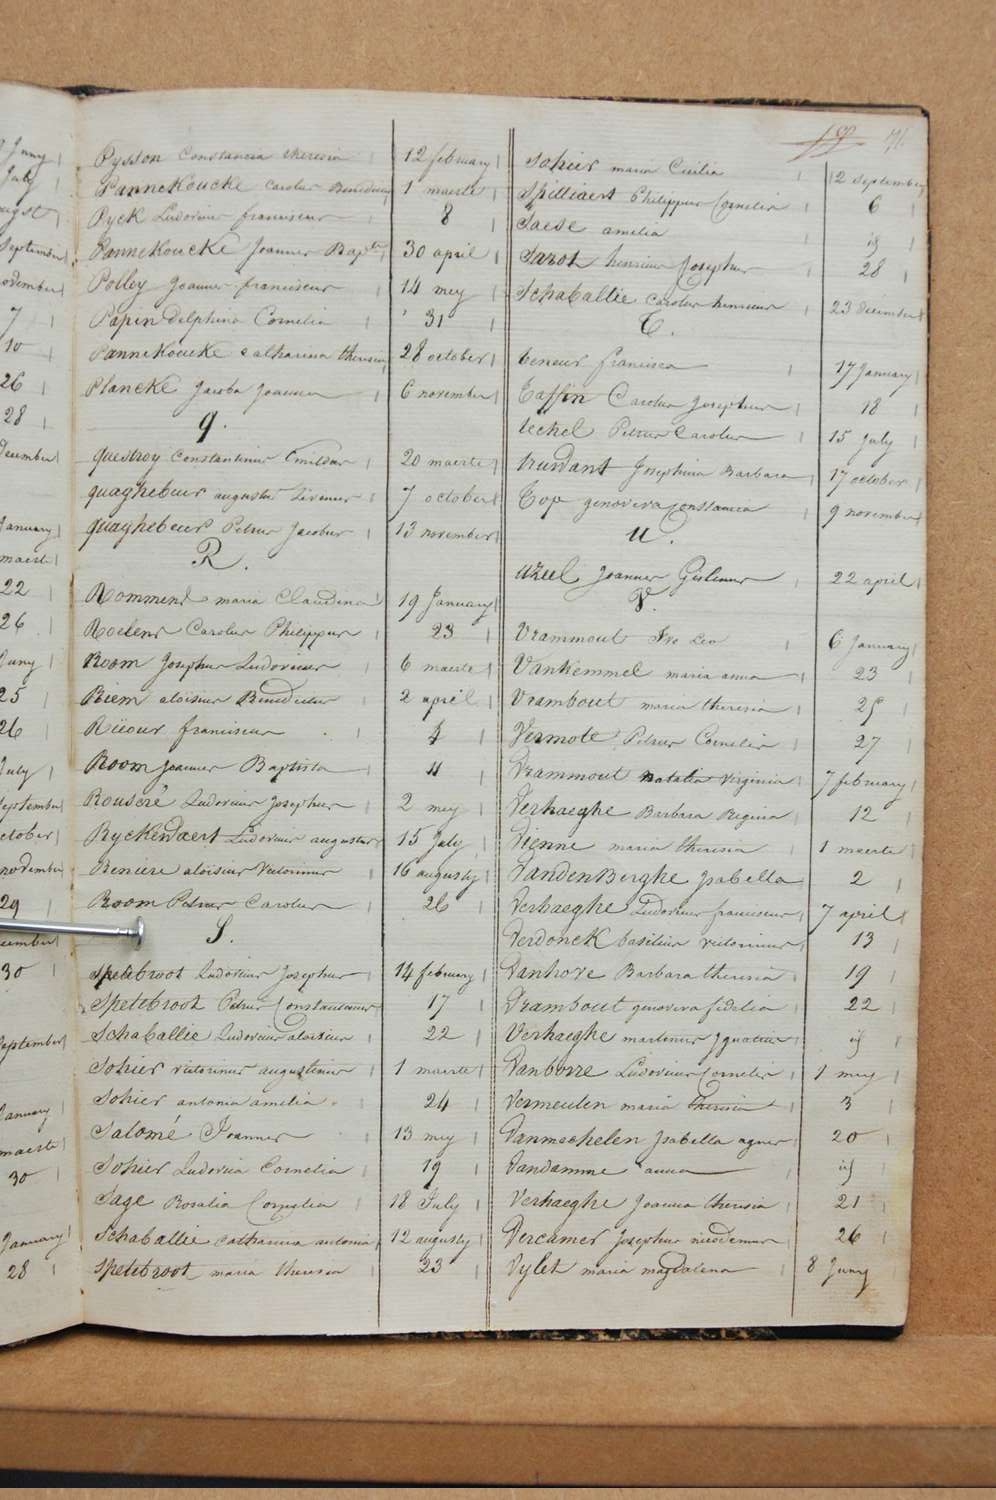 Pysson Constancia theresia 12 february
Pannekoucke Carolus Benedictus 1 maerte
Ryck Ludovicus franciscus 8
Pannekoucke Joannes Bapte 30 april
Polley Joannes franciscus 14 mey
Papin Delphina Cornelia 31
Pannekoucke Catharina theresia 28 october
Plancke Jacoba Joanna 6 november
q.
questroy Constantinus 20 maerte
quaghebeur augustus Livinus 7 october
quaghebeur Petrus Jacobus 13 november
R.
Rommens maria Claudina 19 January
Roelens Carolus Philippus 23
Room Josephus Ludovicus 6 maerte
Riem aloisius Benedictus 2 april
franciscus 4
Room Joannes Baptista 11
Rouseré Ludovicus Josephus 2 mey
Ryckewaert Ludovicus augustus 15 July
Reniere aloisius Victorinus 16 augusty
Room Petrus Carolus 26
S.
Spetebroot Ludovicus Josephus 14 february
Spetebroot Petrus Constantinus 17
Schaballie Ludovicus aloisius 22
Sohier victorinus augustinus 1 maerte
Sohier antonia amelia 24
Salomé Joannes 13 mey
Sohier Ludovica Cornelia 19
Sage Rosalia Cornelia 18 July
Schaballie catharina antonia 12 augusty
Spetebroot maria theresia 23
19 71
Sohier maria Cicilia 2 September
Spilliaert Philippus Cornelius 6
Saese amelia
Sarot henricus Josephus 28
Schaballie carolus henricus 23 December
T.
teneur francisca 17 January
Taffin Carolus Josephus 18
teckel Petrus Carolus 15 July
truwant Josephina Barbara 17 october
Top genoveva Constancia 9 november
U.
uzeel Joannes Gislenus 22 april
V.
Vrammout Ivo Leo 6 January
Vankemmel maria anna 23
Vrambout maria theresia 25
Vermote Petrus Cornelis 27
Vrammout Natalia Virginia 7 february
Verhaeghe Barbara Regina 12
Vienne maria theresia 1 maerte
VandenBerghe Isabella 2
Verhaeghe Ludovicus franciscus 7 april
Verdonck basilius victorinus 13
Vanhove Barbara theresia 19
Vrambout genoveva fidelia 22
Verhaeghe martinus Ignatius
Ludovicus Cornelis 1 mey
Vermeulen maria theresia 3
Vanmechelen Isabella agnes 20
Vandamme anna
Verhaeghe Joanna theresia 21
Vercamer Josephus nicodemus 26
Vylet maria magdalena 8 Juny